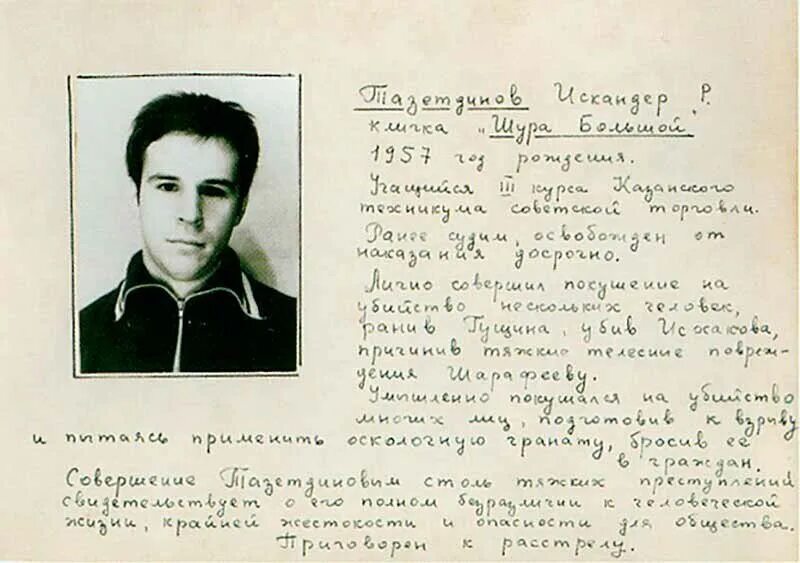 Тазетдинов Искандер Р.
кличка „Шура Большой"
1957 год рождения.
Учащийся III курса Казанского
техникума советской торговли.
Ранее судим, освобожден от
наказания досрочно.
Лично совершил покушение на
убийство нескольких человек,
ранив Гущина, убив Исхакова,
причинив тяжкие телесные повреж-
дения Шарафееву.
Умышленно покушался на убийство
многих лиц, подготовив к взрыву
и пытаясь применить осколочную гранату, бросив ее
в граждан.
Совершение Тазетдиновым столь тяжких преступлений
свидетельствует о его полном безразличии к человеческой
жизни, крайней жестокости и опасности для общества.
Приговорен к расстрелу.